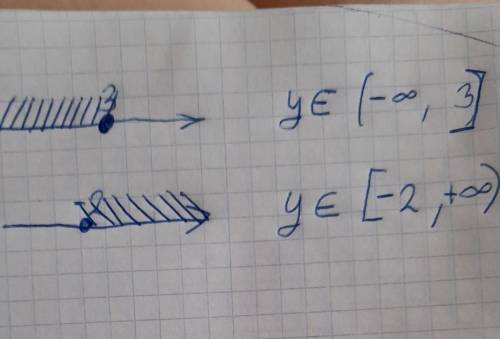 3 y ∈ (-∞, 3]
-2 y ∈ [-2, +∞)